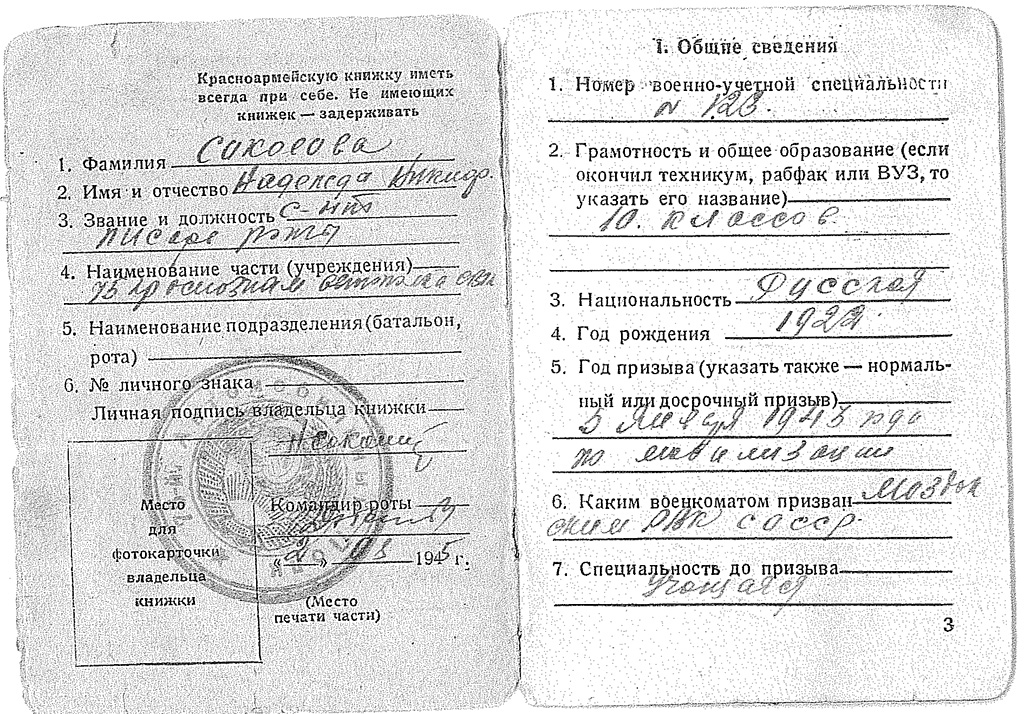 Красноармейскую книжку иметь
всегда при себе. Не имеющих
книжек — задерживать
1. Фамилия Соколова
2. Имя и отчество Надежда Никиф.
3. Звание и должность с-нт
писарь роты
4. Наименование части (учреждения)
75
5. Наименование подразделения (батальон,
рота)
6. № личного знака
Личная подпись владельца книжки
Место
для
фотокарточки
владельца
книжки
Командир роты
«2» 03 1945 г.
(Место
печати части)
I. Общие сведения
1. Номер военно-учетной специальности
N 123.
2. Грамотность и общее образование (если
окончил техникум, рабфак или ВУЗ, то
указать его название)
10. классов
3. Национальность Русская
4. Год рождения 1922
5. Год призыва (указать также — нормаль-
ный или досрочный призыв)
5 января 1943 года
по мобилизации
6. Каким военкоматом призван Моздок
ским РВК СОАССР.
7. Специальность до призыва
Учащаяся
3